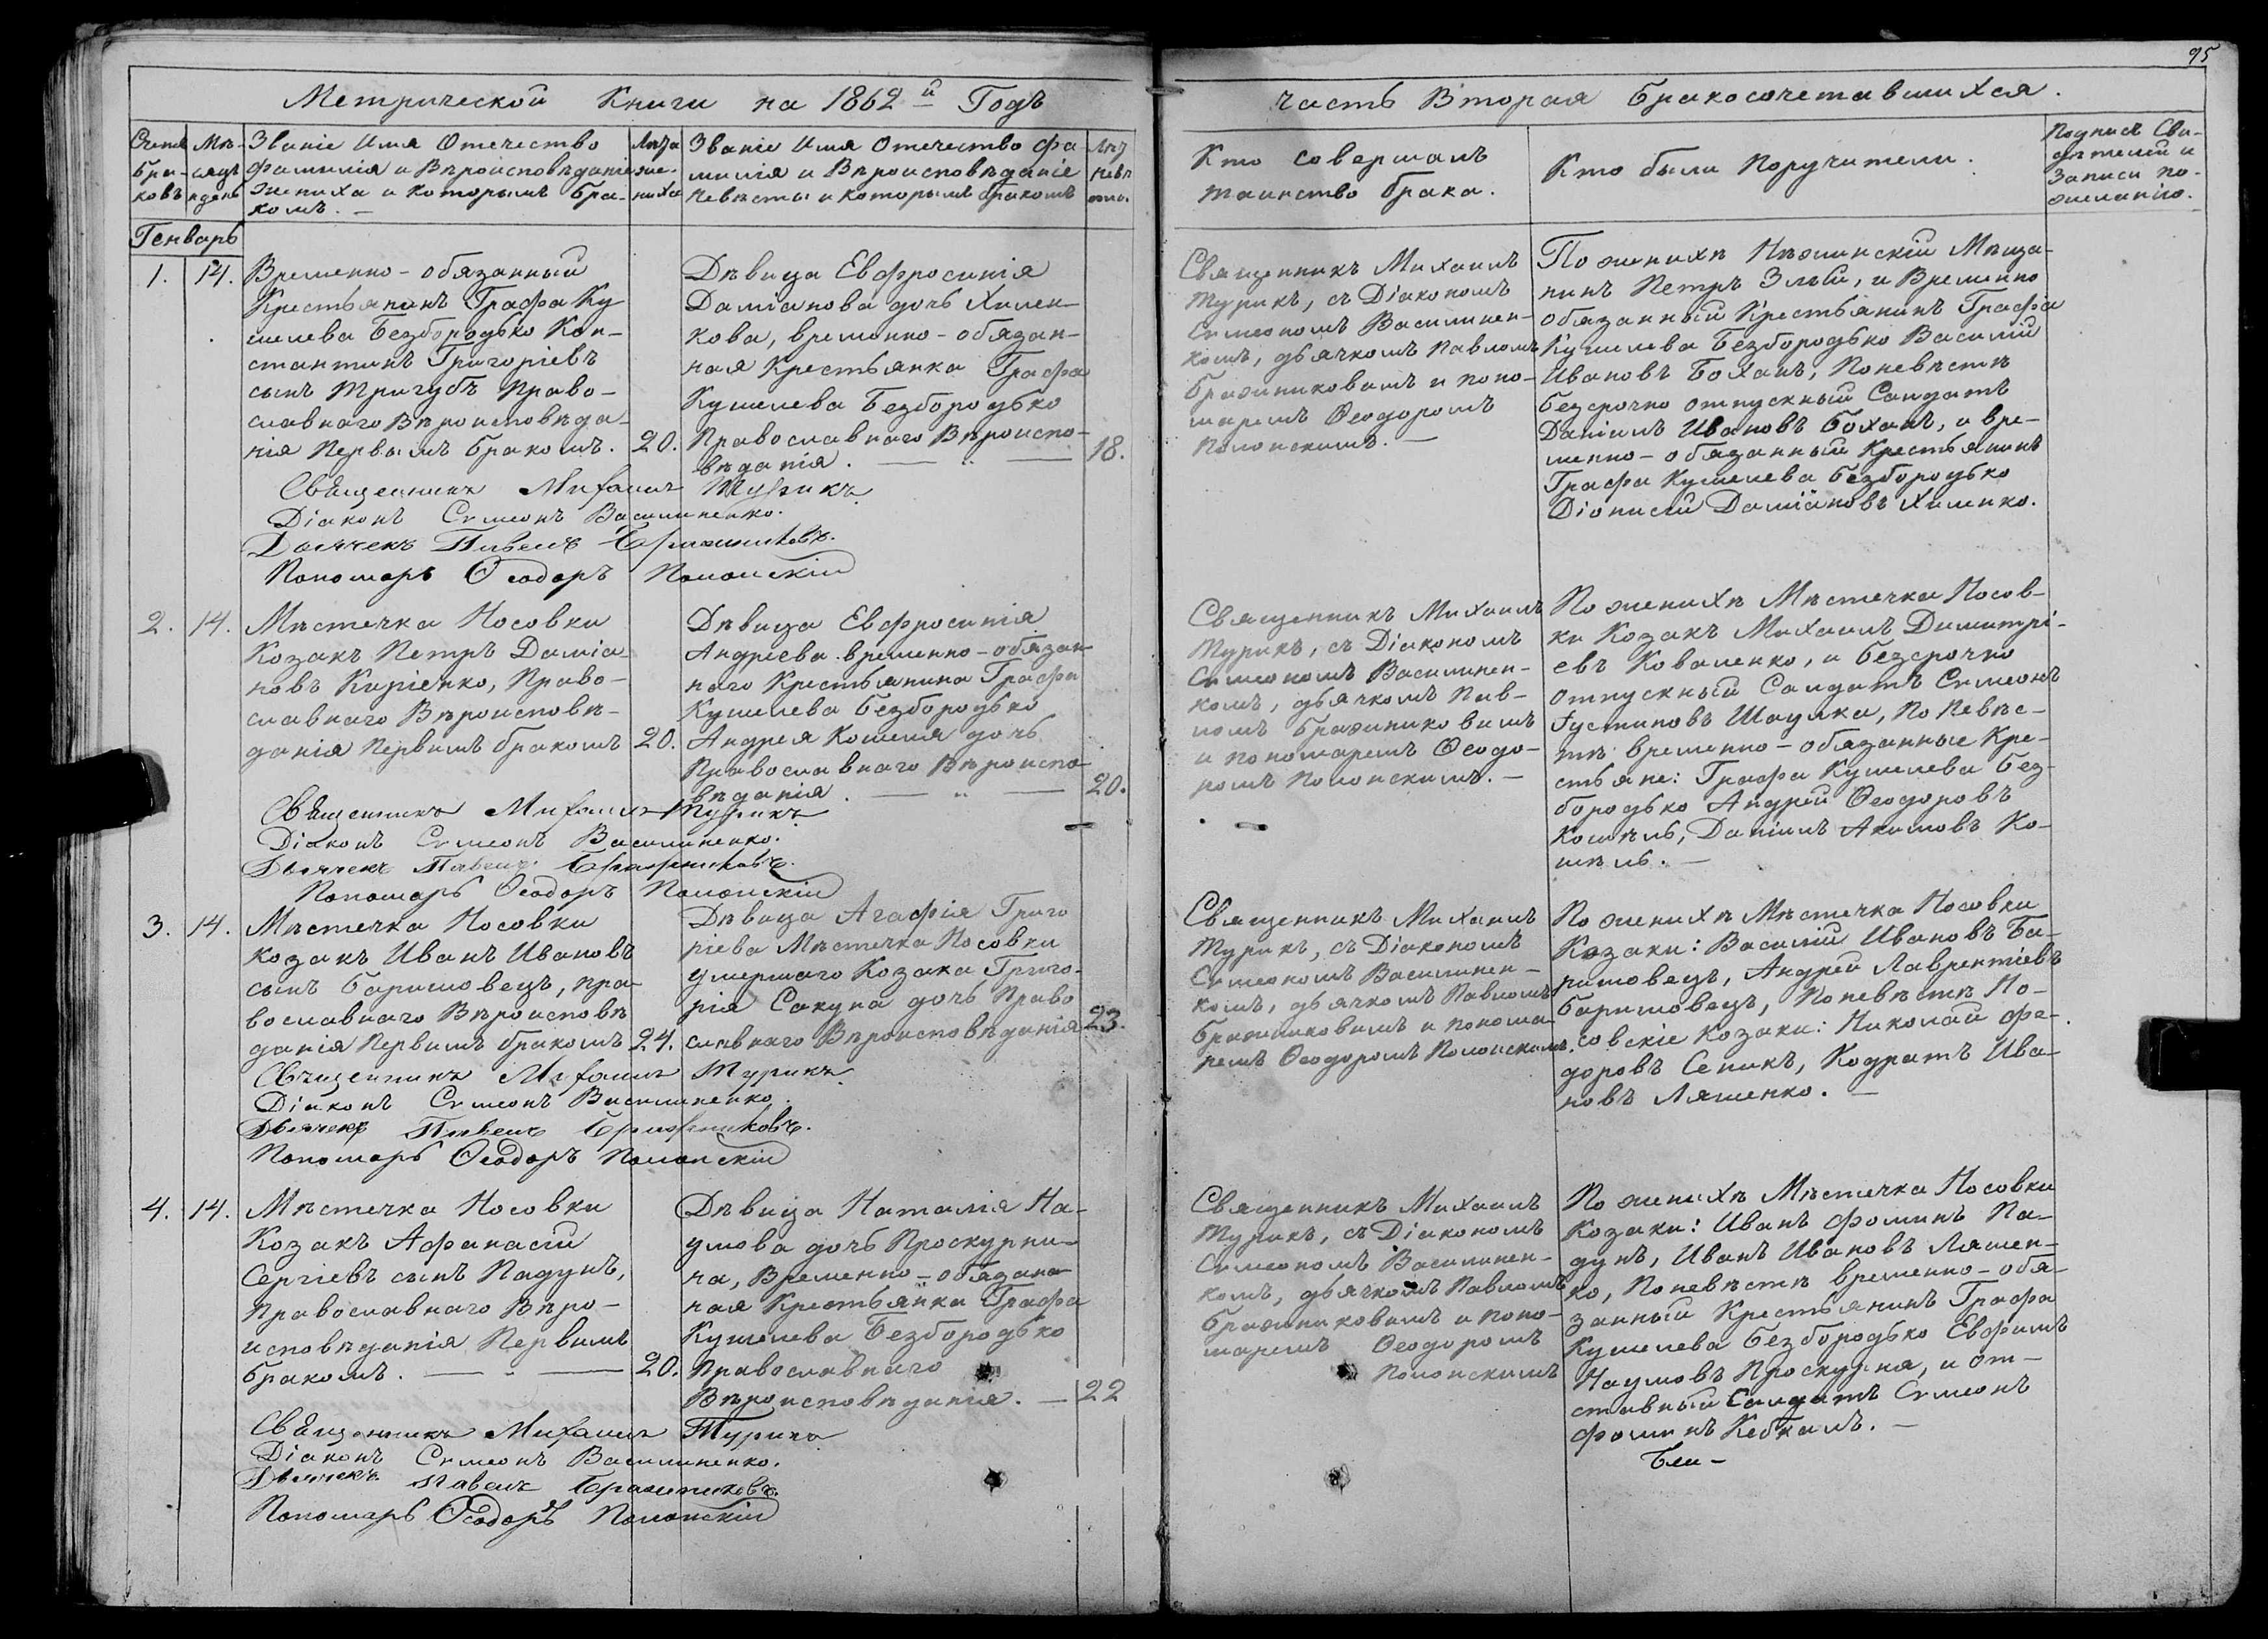 95
Метрической Книги на 1862й Годъ
часть Вторая Бракосочетавшихся.
Счетъ Бра-ковъ
Мѣ-сяцъ и день
Званіе Имя Отечество
Фамилія и Вѣроисповѣданіе
Жениха и которымъ бра-
комъ. —
Лѣта же-ниха
Званіе Имя Отечество фа
милія и Вѣроисповѣданіе
Невѣсты и которымъ бракомъ
Лѣт невѣ сты.
Кто совершалъ
таинство брака.
Кто были Поручители.
Подпись Сви-
дѣтелей и
Записи по-
желанію.
Генварь
1. 14.
Временно-обязанный
Крестьянинъ Графа Ку
шелева Безбородько Кон-
стантинъ Григоріевъ
сынъ Тригубъ Право-
славнаго Вѣроисповѣда-
нія Первымъ бракомъ. 20.
Дѣвица Евфросинія
Даміанова дочь Химен-
кова, временно-обязан-
ная Крестьянка Графа
Кушелева Безбородько
Православнаго Вѣроиспо-
вѣданія. — „ — 18.
Священникъ Михаилъ
Турикъ, съ Діакономъ
Симеономъ Василинен-
комъ, дьячкомъ Павломъ
Бражниковымъ и поно-
маремъ Ѳеодоромъ
Полонскимъ. —
По женихѣ Нѣжинскій Мѣща-
нинъ Петръ Злый, и Временно
обязанный Крестьянинъ Графа
Кушелева Безбородько Василій
Ивановъ Боханъ, По невѣстѣ
безсрочно отпускный Салдатъ
Даніилъ Ивановъ Боханъ, и вре-
менно-обязанный Крестьянинъ
Графа Кушелева Безбородько
Діонисій Даміановъ Хименко.
Священникъ Михаилъ Турикъ
Діаконъ Симеонъ Василиненко.
Дьячекъ Павелъ Бражниковъ.
Пономарь Ѳеодоръ Полонскій
2. 14.
Мѣстечка Носовки
Козакъ Петръ Даміа-
новъ Киріенко, Право-
славнаго Вѣроисповѣ-
данія Первымъ бракомъ 20.
Дѣвица Евфросинія
Андреева временно-обязан-
наго Крестьянина Графа
Кушелева Безбородько
Андрея Кошеля дочь
Православнаго Вѣроиспо-
вѣданія. — „ — 20.
Священникъ Михаилъ
Турикъ, съ Діакономъ
Симеономъ Василинен-
комъ, дьячкомъ Пав-
ломъ Бражниковымъ
и пономаремъ Ѳеодо-
ромъ Полонскимъ. —
По женихѣ Мѣстечка Носов-
ки Козакъ Михаилъ Димитрі-
евъ Коваленко, и безсрочно
отпускный Салдатъ Симеонъ
Іустиновъ Шаулка, По Невѣс-
тѣ временно-обязанные Кре-
стьяне: Графа Кушелева Без-
бородько Андрей Ѳеодоровъ
Кошель, Даніилъ Акимовъ Ко-
шель. —
Священникъ Михаилъ Турикъ
Діаконъ Симеонъ Василиненко.
Дьячекъ Павелъ Бражниковъ.
Пономарь Ѳеодоръ Полонскій
3. 14.
Мѣстечка Носовки
козакъ Иванъ Ивановъ
сынъ Баришовецъ, пра-
вославнаго Вѣроисповѣ
данія Первымъ бракомъ 24.
Дѣвица Агафія Григо
ріева Мѣстечка Носовки
умершаго Козака Григо-
рія Сакуна дочь Право
славнаго Вѣроисповѣданія 23.
Священникъ Михаилъ
Турикъ, съ Діакономъ
Симеономъ Василинен-
комъ, дьячкомъ Павломъ
Бражниковымъ и понома-
ремъ Ѳеодоромъ Полонскимъ.
По женихѣ Мѣстечка Носовки
Козаки: Василій Ивановъ Ба-
ришовецъ, Андрей Лаврентіевъ
Баришовецъ, По невѣстѣ Но-
совскіе Козаки: Николай Фе-
доровъ Сепикъ, Кодратъ Ива-
новъ Ляшенко. —
Священникъ Михаилъ Турикъ
Діаконъ Симеонъ Василиненко.
Дьячекъ Павелъ Бражниковъ.
Пономарь Ѳеодоръ Полонскій
4. 14.
Мѣстечка Носовки
Козакъ Афанасій
Сергіевъ сынъ Падунъ,
Православнаго Вѣро-
исповѣданія Первымъ
бракомъ. — „ — 20.
Дѣвица Наталія На-
умова дочь Проскурни-
ча, Временно-обязан
ная Крестьянка Графа
Кушелева Безбородько
Православнаго
Вѣроисповѣданія. — 22
Священникъ Михаилъ
Турикъ, съ Діакономъ
Симеономъ Василинен-
комъ, дьячкомъ Павломъ
Бражниковымъ и поно-
маремъ Ѳеодоромъ
Полонскимъ
По женихѣ Мѣстечка Носовки
Козаки: Иванъ Фоминъ Па-
дунъ, Иванъ Ивановъ Ляшен-
ко, По невѣстѣ временно-обя-
занный Крестьянинъ Графа
Кушелева Безбородько Евфимъ
Наумовъ Проскурня, и от-
ставный Салдатъ Симеонъ
Фоминъ Кебкалъ. —
Священникъ Михаилъ Турикъ
Діаконъ Симеонъ Василиненко.
Дьячекъ Павелъ Бражниковъ.
Пономарь Ѳеодоръ Полонскій